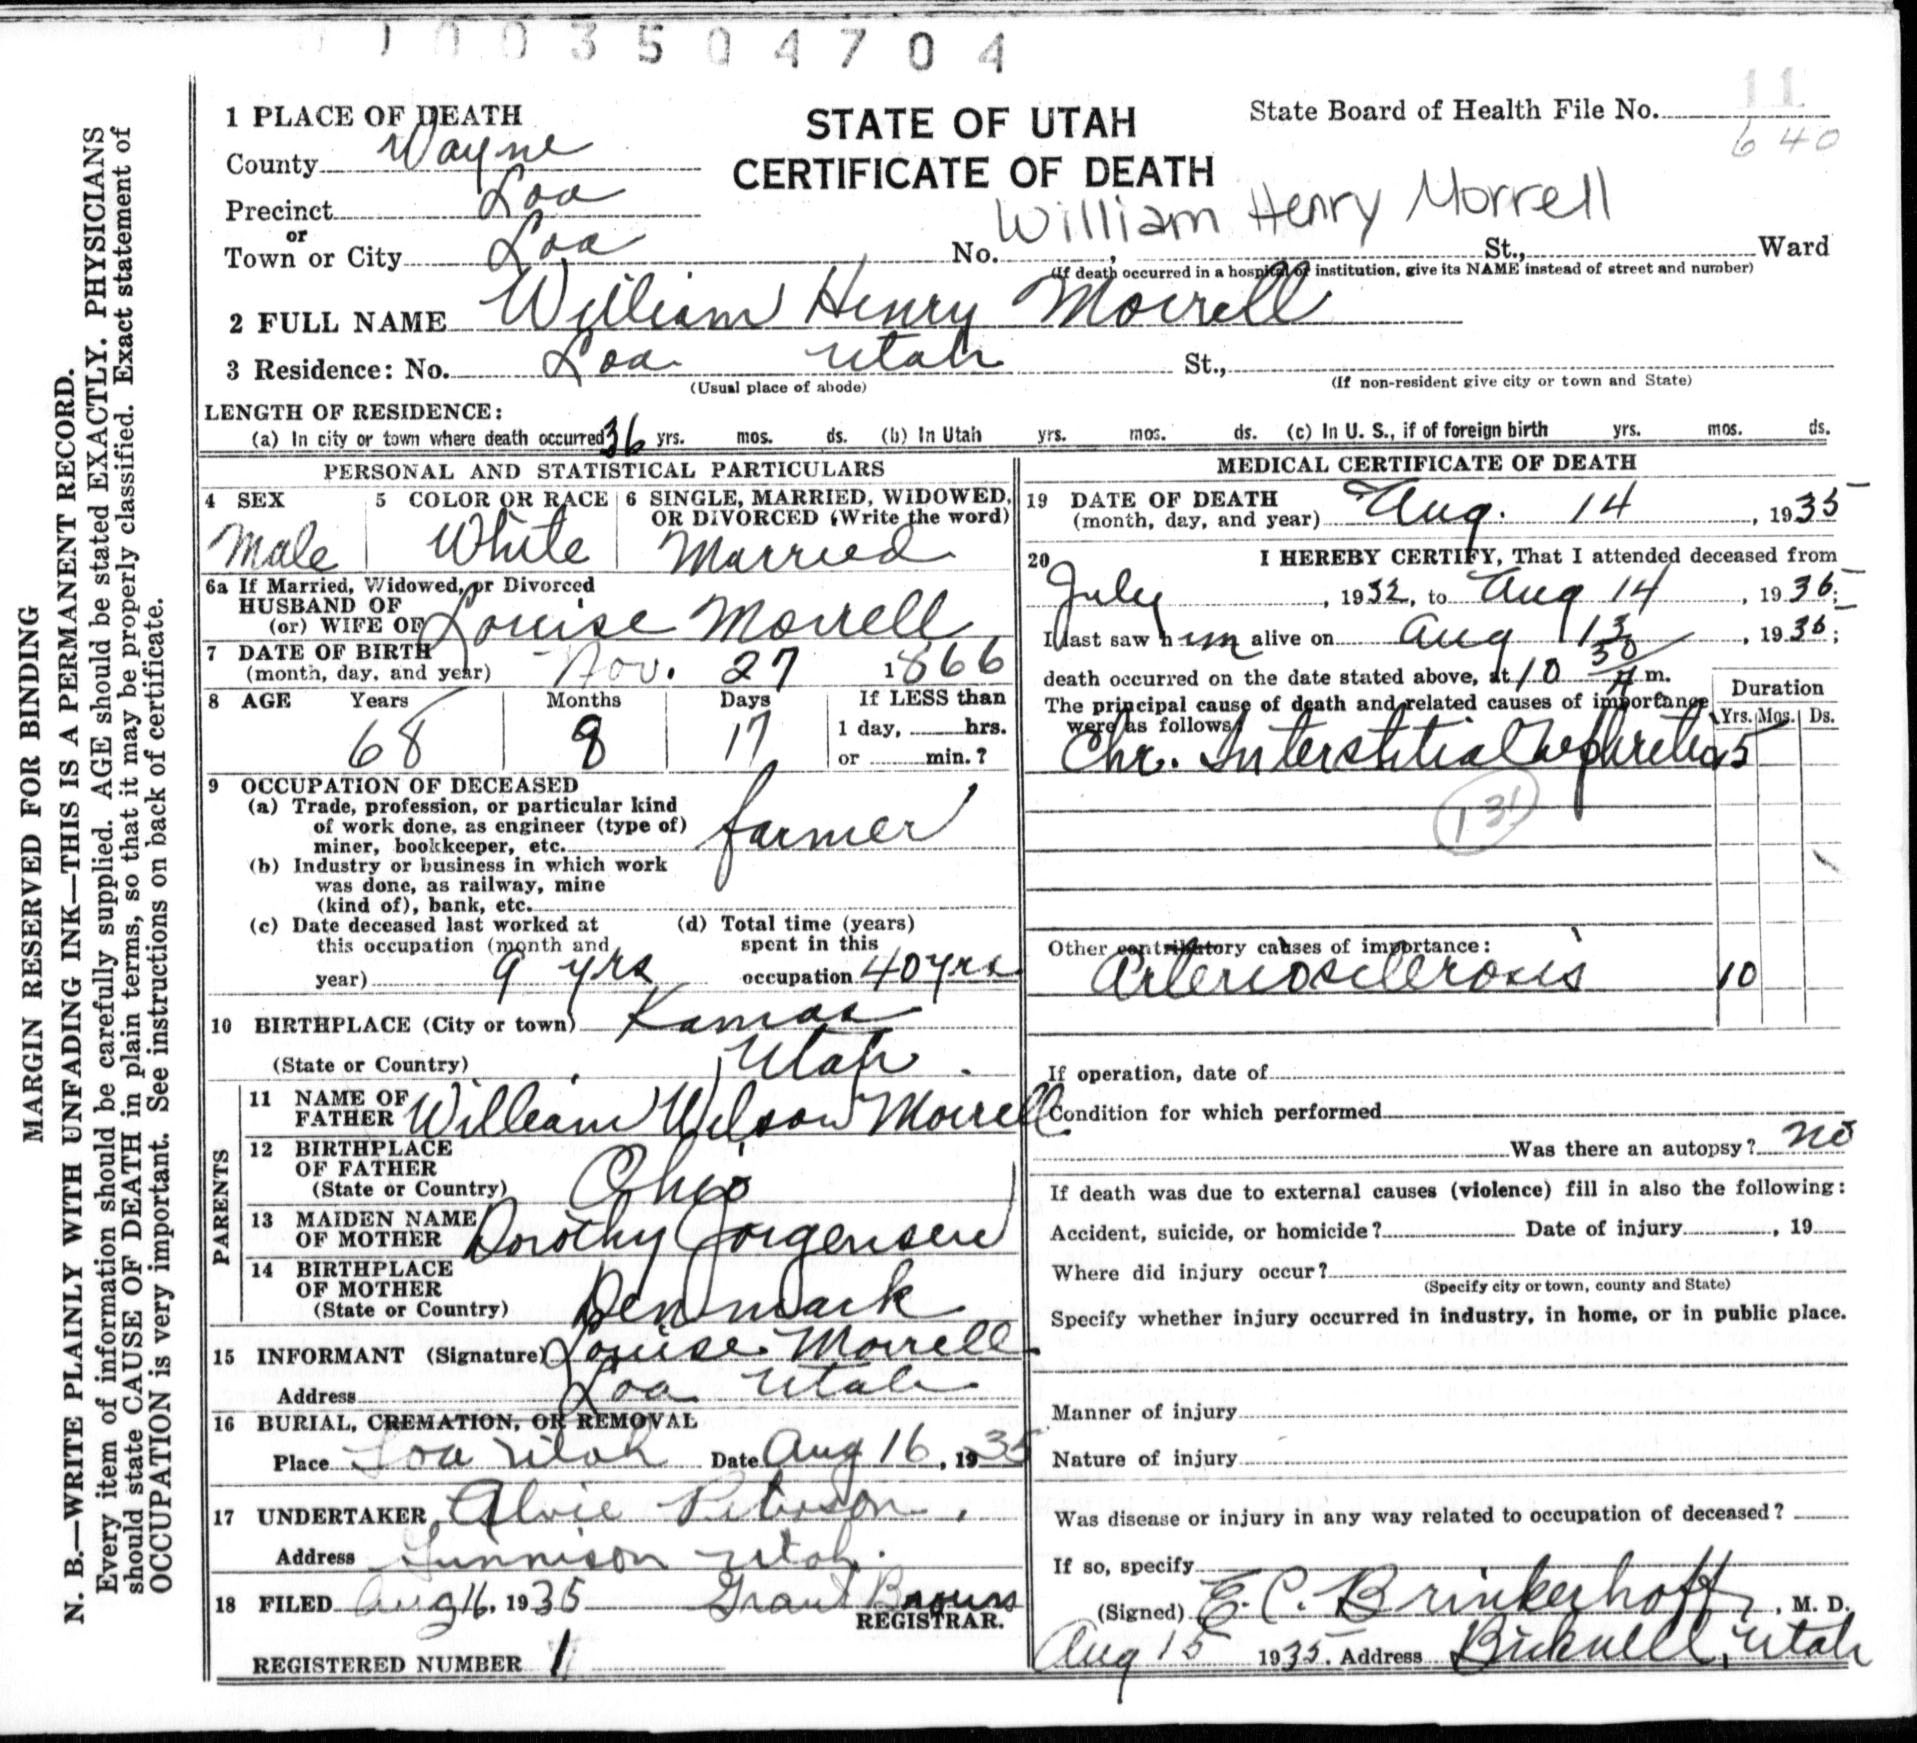 0 1 0 0 3 5 0 4 7 0 4
MARGIN RESERVED FOR BINDING
N. B.—WRITE PLAINLY WITH UNFADING INK—THIS IS A PERMANENT RECORD.
Every item of information should be carefully supplied. AGE should be stated EXACTLY. PHYSICIANS
should state CAUSE OF DEATH in plain terms, so that it may be properly classified. Exact statement of
OCCUPATION is very important. See instructions on back of certificate.
STATE OF UTAH
CERTIFICATE OF DEATH
State Board of Health File No. 11
640
1 PLACE OF DEATH
County Wayne
Precinct Loa
or
Town or City Loa No. , St., Ward
William Henry Morrell
(If death occurred in a hospital or institution, give its NAME instead of street and number)
2 FULL NAME William Henry Morrell
3 Residence: No. Loa Utah St.,
(Usual place of abode) (If non-resident give city or town and State)
LENGTH OF RESIDENCE:
(a) In city or town where death occurred 36 yrs. mos. ds. (b) In Utah yrs. mos. ds. (c) In U. S., if of foreign birth yrs. mos. ds.
PERSONAL AND STATISTICAL PARTICULARS
4 SEX
Male
5 COLOR OR RACE
White
6 SINGLE, MARRIED, WIDOWED,
OR DIVORCED (Write the word)
Married
6a If Married, Widowed, or Divorced
HUSBAND OF
(or) WIFE OF Louise Morrell
7 DATE OF BIRTH
(month, day, and year) Nov. 27 1866
8 AGE Years Months Days If LESS than
68 8 17 1 day, hrs.
or min.?
9 OCCUPATION OF DECEASED
(a) Trade, profession, or particular kind
of work done, as engineer (type of)
miner, bookkeeper, etc. farmer
(b) Industry or business in which work
was done, as railway, mine
(kind of), bank, etc.
(c) Date deceased last worked at
this occupation (month and
year) 9 yrs
(d) Total time (years)
spent in this
occupation 40 yrs
10 BIRTHPLACE (City or town) Kamas
(State or Country) Utah
PARENTS
11 NAME OF
FATHER William Wilson Morrell
12 BIRTHPLACE
OF FATHER
(State or Country) Ohio
13 MAIDEN NAME
OF MOTHER Dorothy Jorgensen
14 BIRTHPLACE
OF MOTHER
(State or Country) Denmark
15 INFORMANT (Signature) Louise Morrell
Address Loa Utah
16 BURIAL, CREMATION, OR REMOVAL
Place Loa Utah Date Aug 16, 1935
17 UNDERTAKER Alvie Peterson
Address Gunnison Utah.
18 FILED Aug 16, 1935 Grant
REGISTRAR.
REGISTERED NUMBER 1
MEDICAL CERTIFICATE OF DEATH
19 DATE OF DEATH
(month, day, and year) Aug. 14, 1935
20 I HEREBY CERTIFY, That I attended deceased from
July, 1932, to Aug 14, 1935;
I last saw him alive on Aug 13, 1935;
death occurred on the date stated above, at 10 30 A m.
The principal cause of death and related causes of importance
were as follows:
Duration
Yrs. Mos. Ds.
Chr. Interstitial Nephritis 5
131
Other contributory causes of importance:
Arteriosclerosis 10
If operation, date of
Condition for which performed
Was there an autopsy? no
If death was due to external causes (violence) fill in also the following:
Accident, suicide, or homicide? Date of injury , 19
Where did injury occur?
(Specify city or town, county and State)
Specify whether injury occurred in industry, in home, or in public place.
Manner of injury
Nature of injury
Was disease or injury in any way related to occupation of deceased?
If so, specify
(Signed) E. C. Brinkerhoff, M. D.
Aug 15 1935. Address Bicknell, Utah